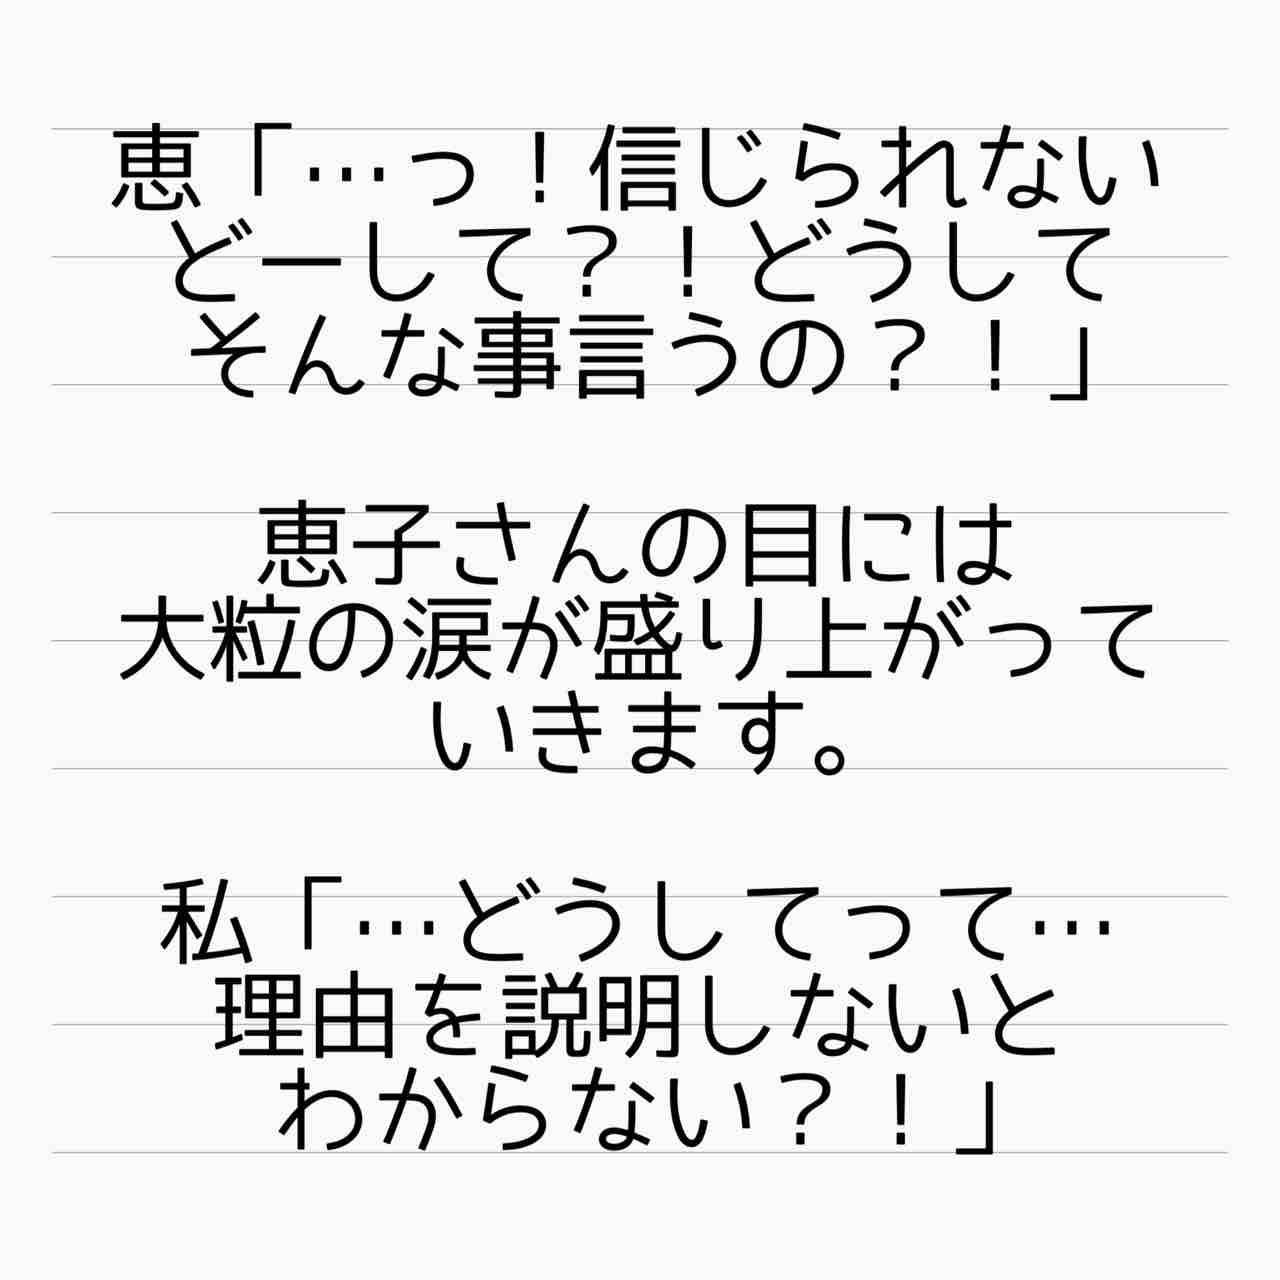 恵「…っ！信じられない
どーして？！どうして
そんな事言うの？！」
恵子さんの目には
大粒の涙が盛り上がって
いきます。
私「…どうしてって…
理由を説明しないと
わからない？！」